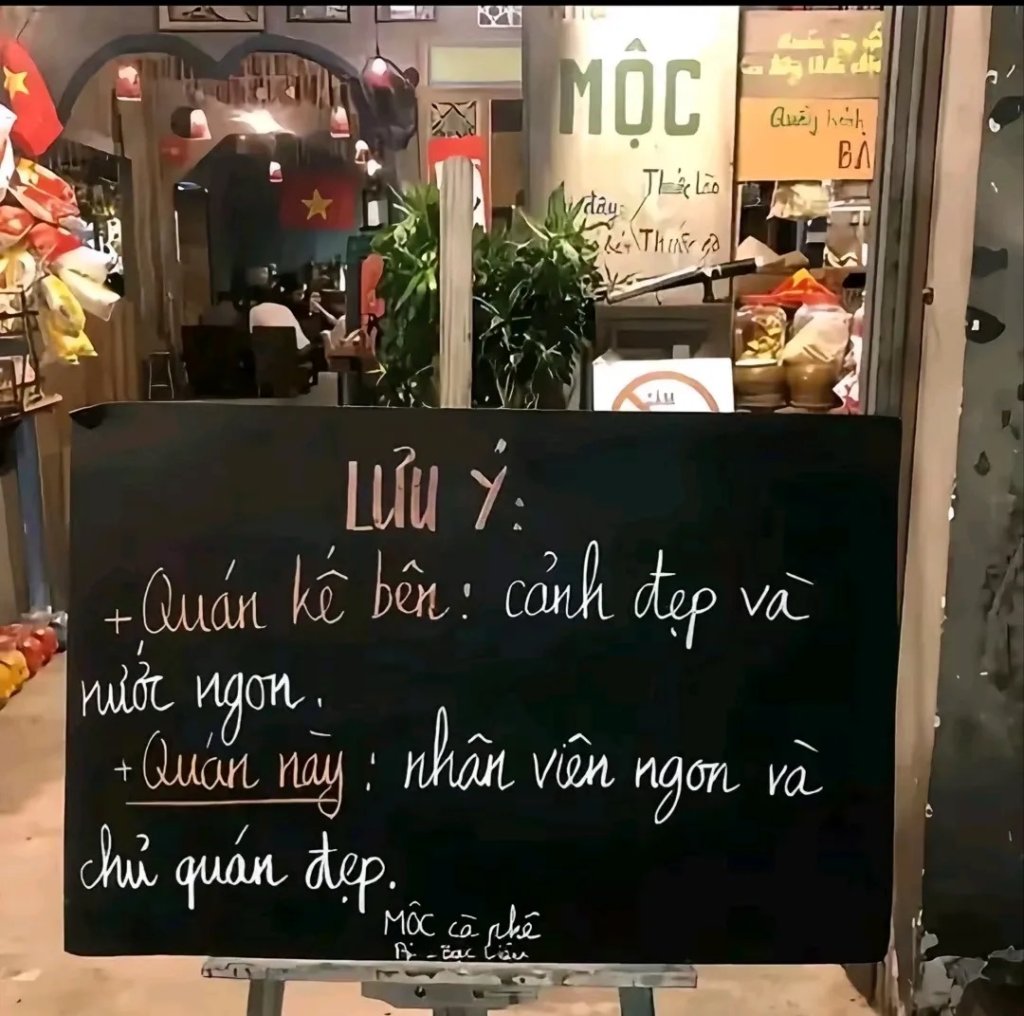 MỘC
Quầy bánh
BA
Thuốc Lào
đây
LƯU Ý:
+ Quán kế bên: cảnh đẹp và
nước ngon.
+ Quán này: nhân viên ngon và
chủ quán đẹp.
MỘC cà phê
Bạc Liêu